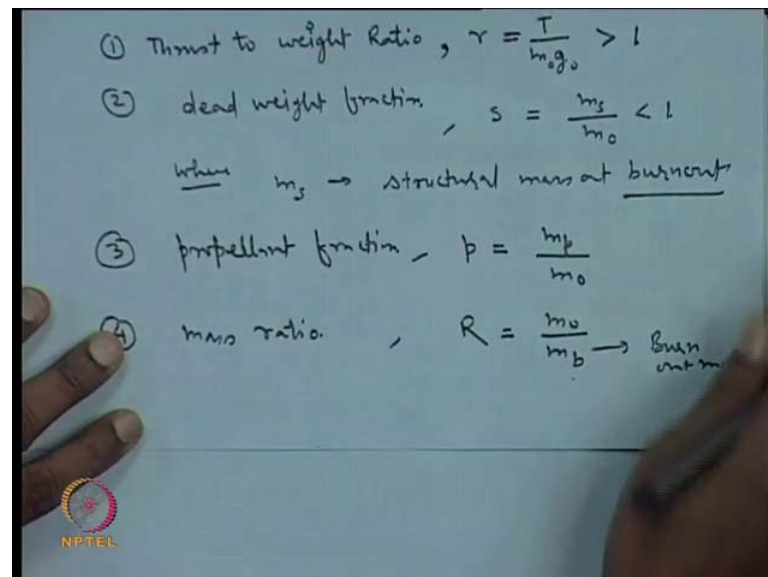 ① Thrust to weight Ratio, r = T / m₀g₀ > 1
② dead weight fraction, s = mₛ / m₀ < 1
where mₛ → structural mass at burnout
③ propellant fraction, p = mₚ / m₀
④ mass ratio, R = m₀ / m_b → Burn
out
NPTEL